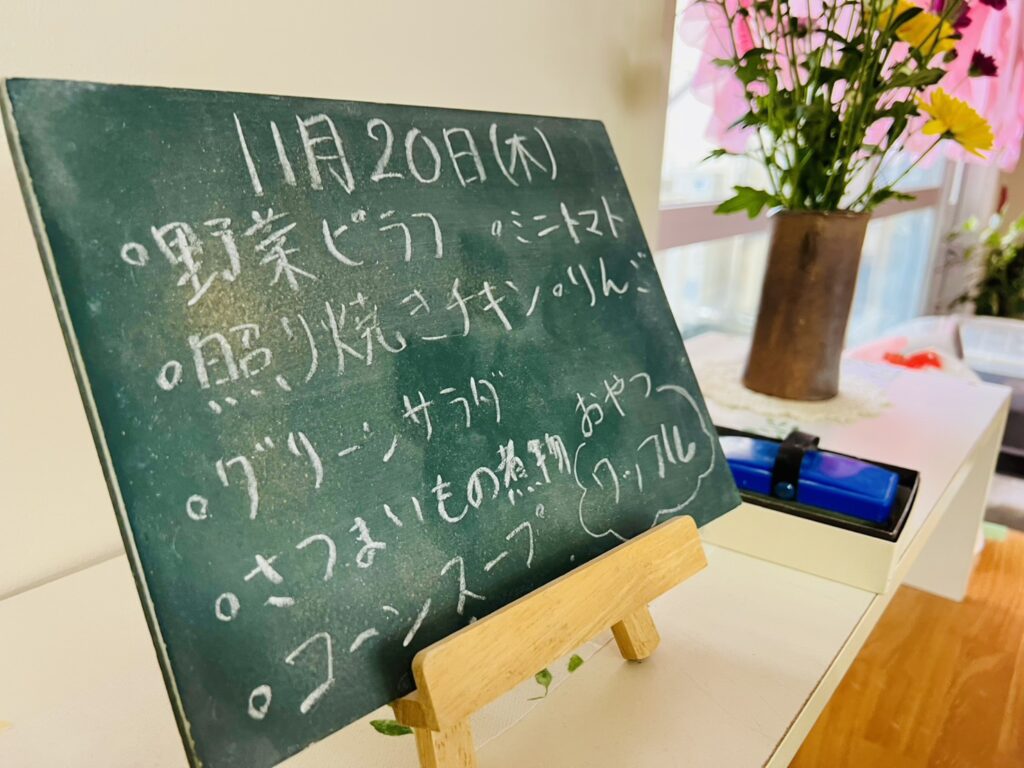 11月20日(木)
○野菜ピラフ ○ミニトマト
○照り焼きチキン ○りんご
○グリーンサラダ
○さつまいもの煮物
○コーンスープ
おやつ
ワッフル